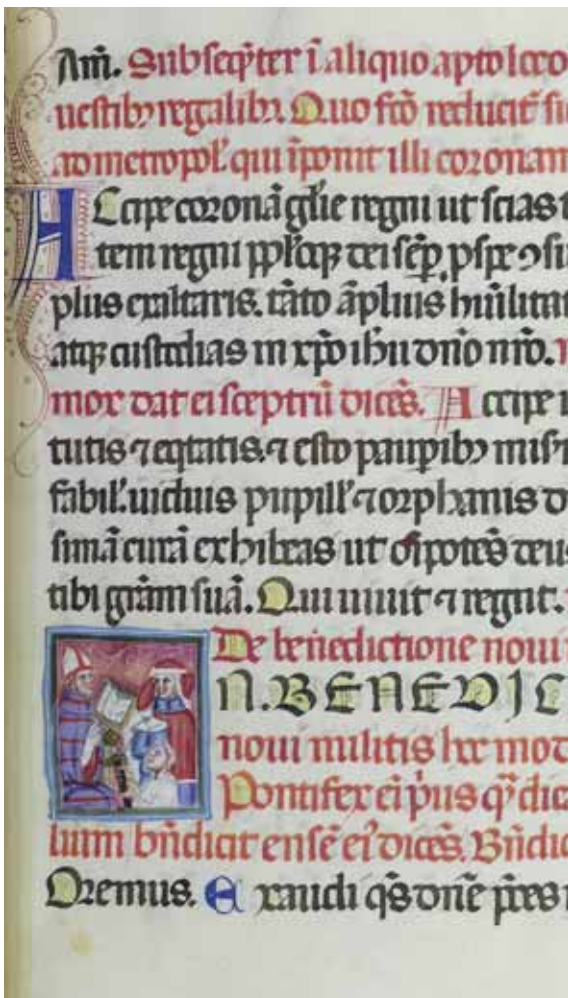 Am̄. Subseq̄ter ī aliquo apto loco
uestibꝫ regalibꝫ. Quo fc̄o reducit̄
ad metropol̄. qui īponit illi coronam
Accipe coronā glīe regni ut scias
tem regni pp̄liqꝫ dei sēp̄. ꝓspe
plus exaltaris. tāto āplius hūilitat
atqꝫ custodias in xp̄o ihū dn̄o nr̄o.
mox dat ei sceptrū dicēs. Accipe
tutis ⁊ eq̄tatis. ⁊ esto paupibꝫ
fabil̄. uiduis pupill̄ ⁊ orphanis
simā curā exhibeas ut oīpotēs deus
tibi grām suā. Qui uiuit ⁊ regnt̄.
De benedictione noui
N. BENEDIC
noui militis hoc mod
Pontifex ei p̄us q̄ dic
bn̄dicit ensē eī dicēs. Bn̄dic
Oremus. Exaudi q̄s dn̄e p̄ces